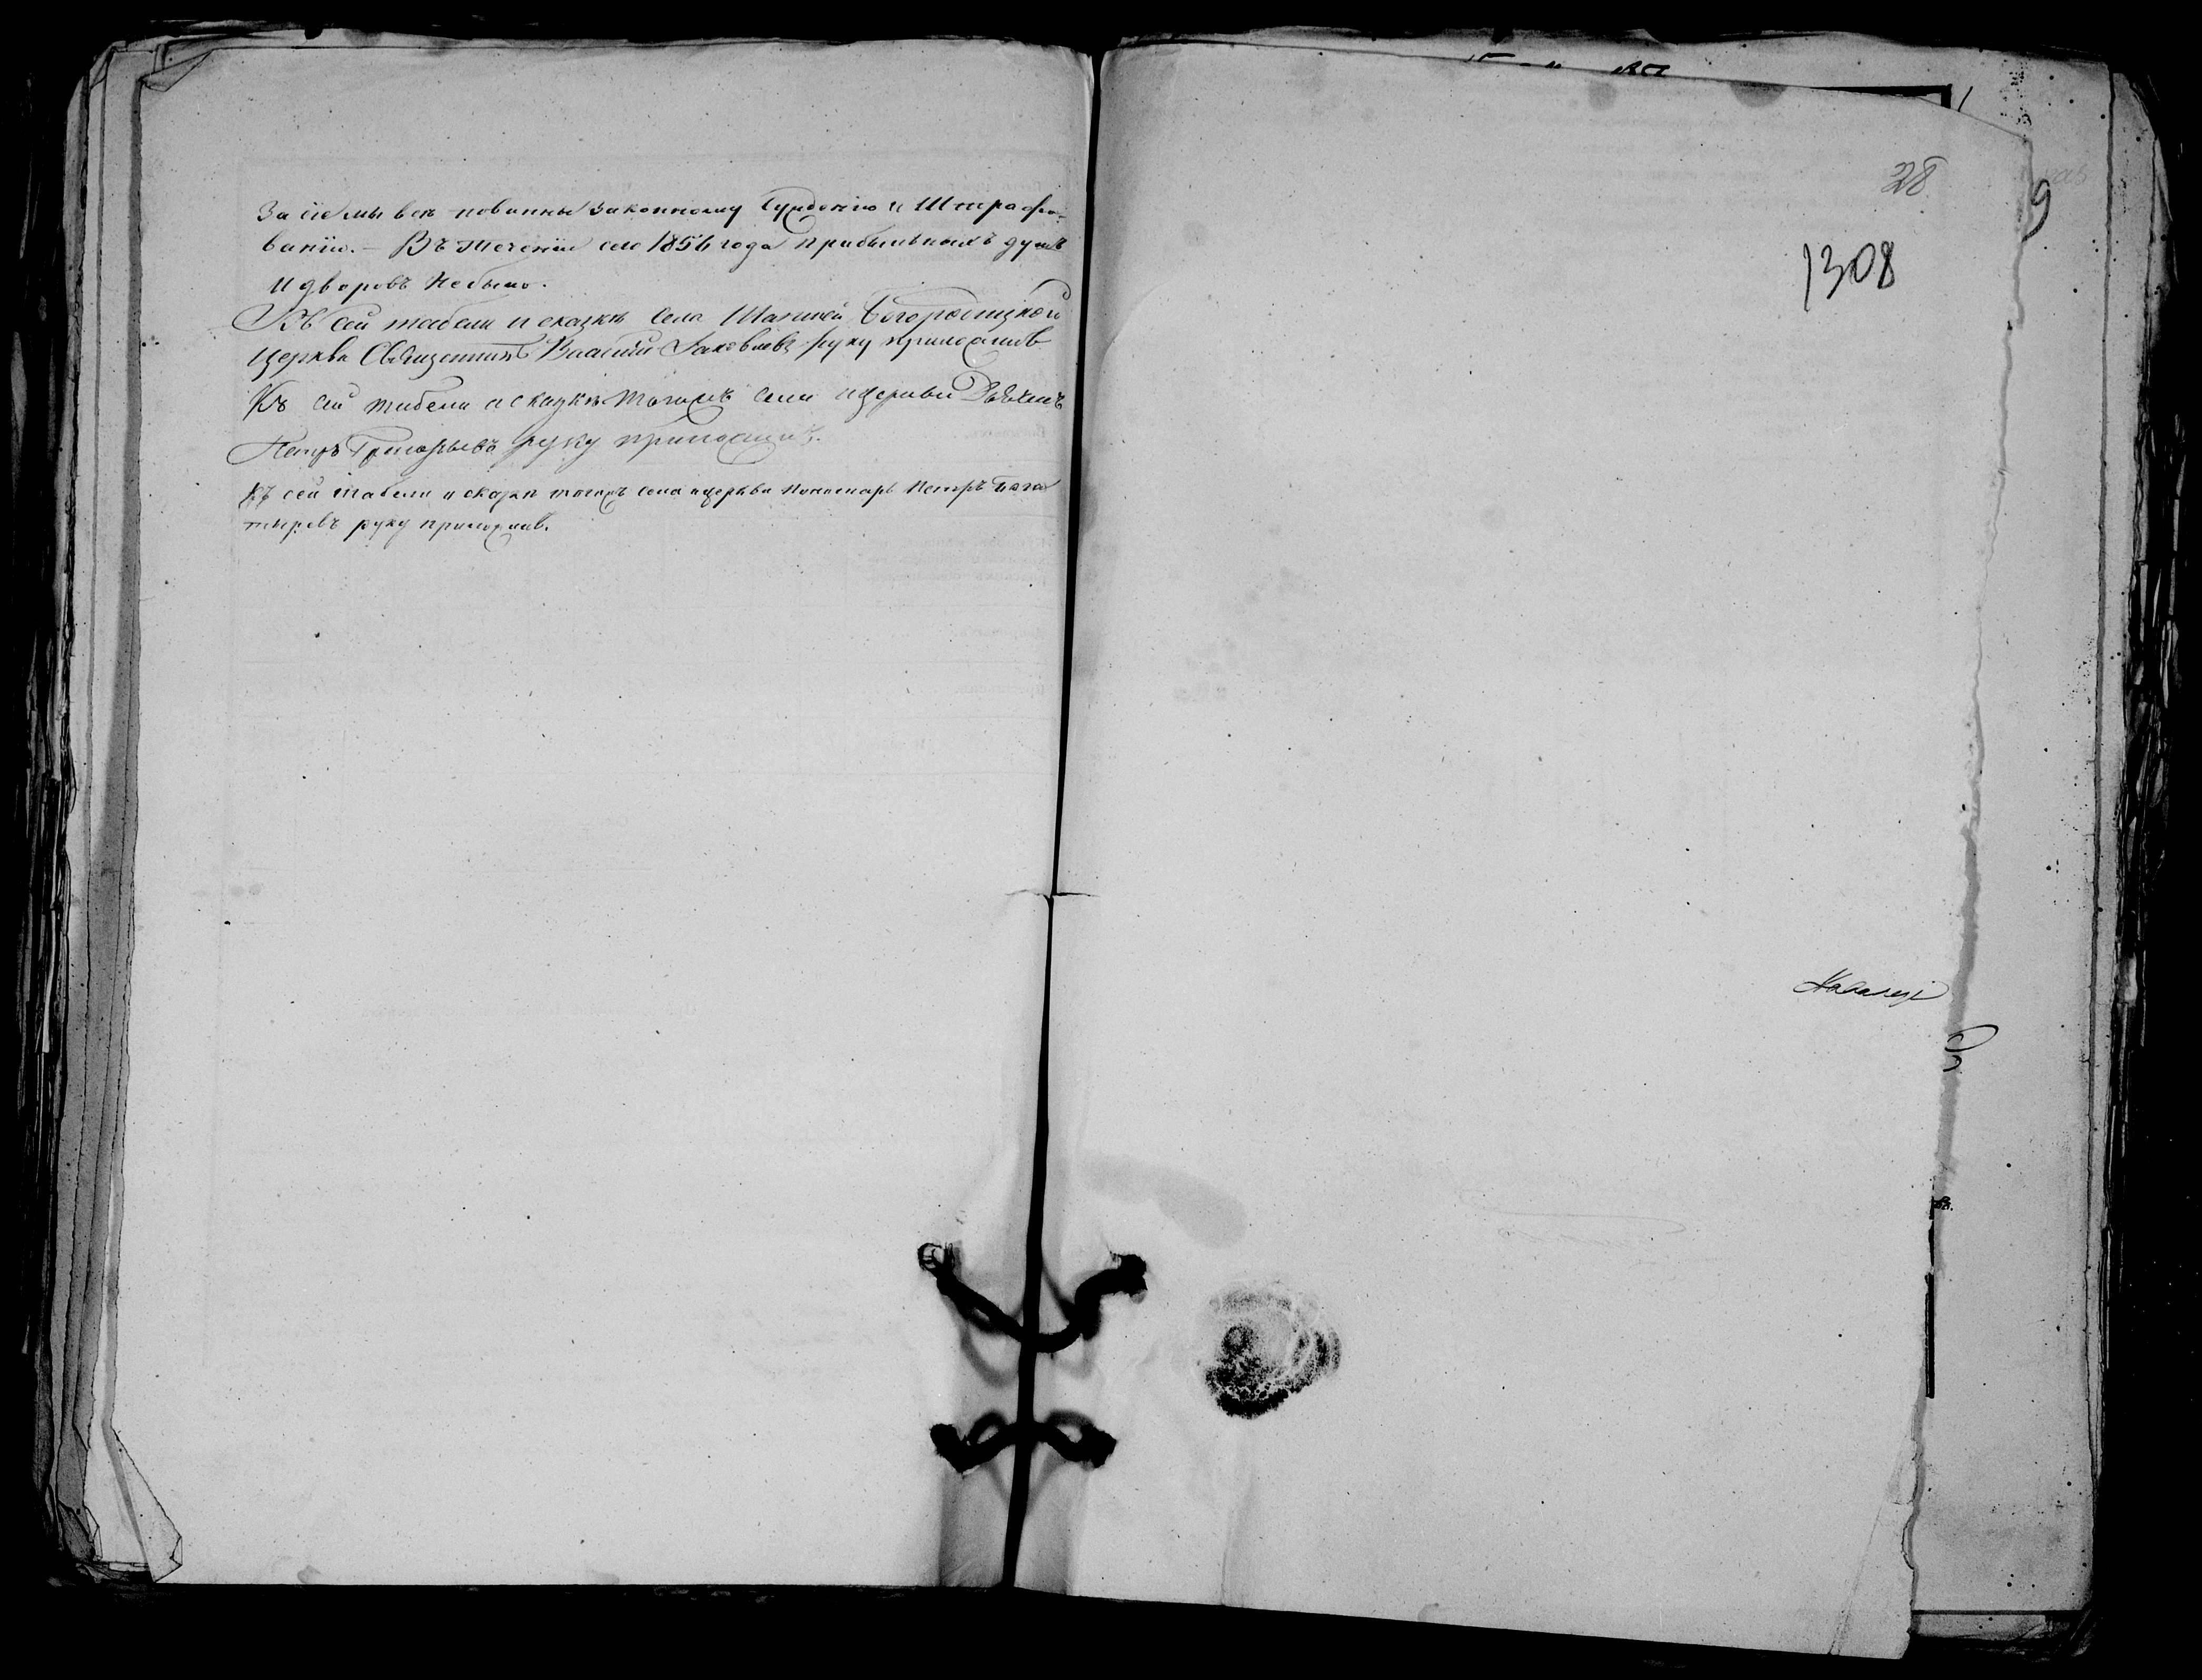 За сіе мы всѣ повинны законному сужденію и Штрафо-
ванію. — Въ теченіи сего 1854 года прибыльныхъ душъ
и дворовъ Небыло.
Къ сей табели и сказкѣ села Богородицкой
церкви Священникъ Василій Іаковлевъ руку приложилъ
Къ сей табели и сказкѣ тогожъ села церкви Дьячекъ
Петръ Григорьевъ руку приложилъ.
Къ сей табели и сказки тогожъ села церкви Пономарь Петръ Бога
тыревъ руку приложилъ.
28
9
1308